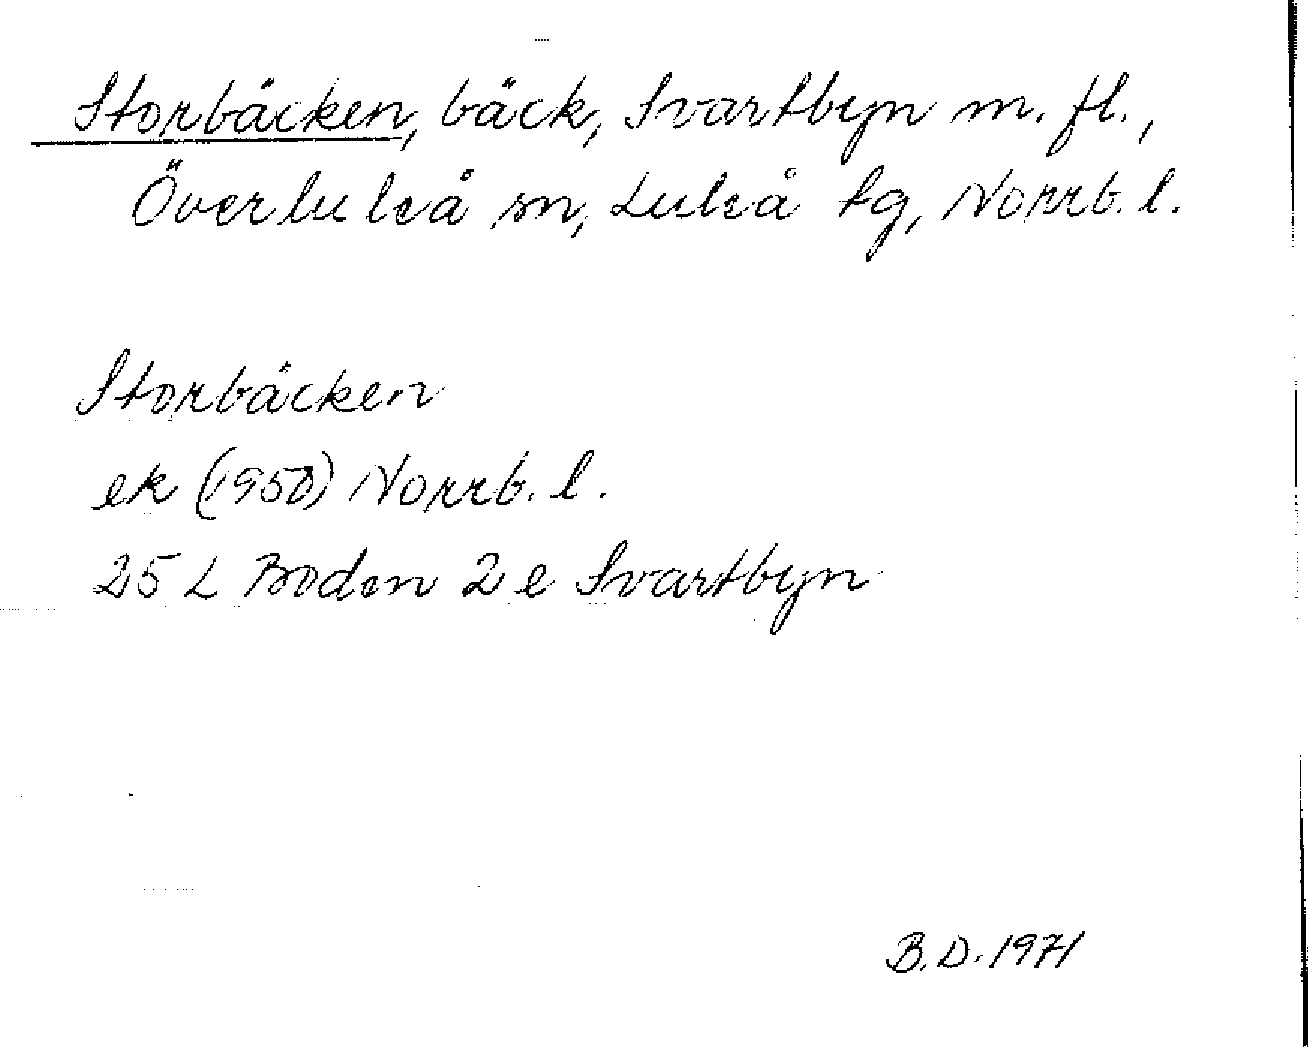 Storbäcken, bäck, Svartbyn m. fl.,
Överluleå sn, Luleå tg, Norrb. l.
Storbäcken
ek (1950) Norrb. l.
25 L Boden 2 e Svartbyn
B.D. 1971